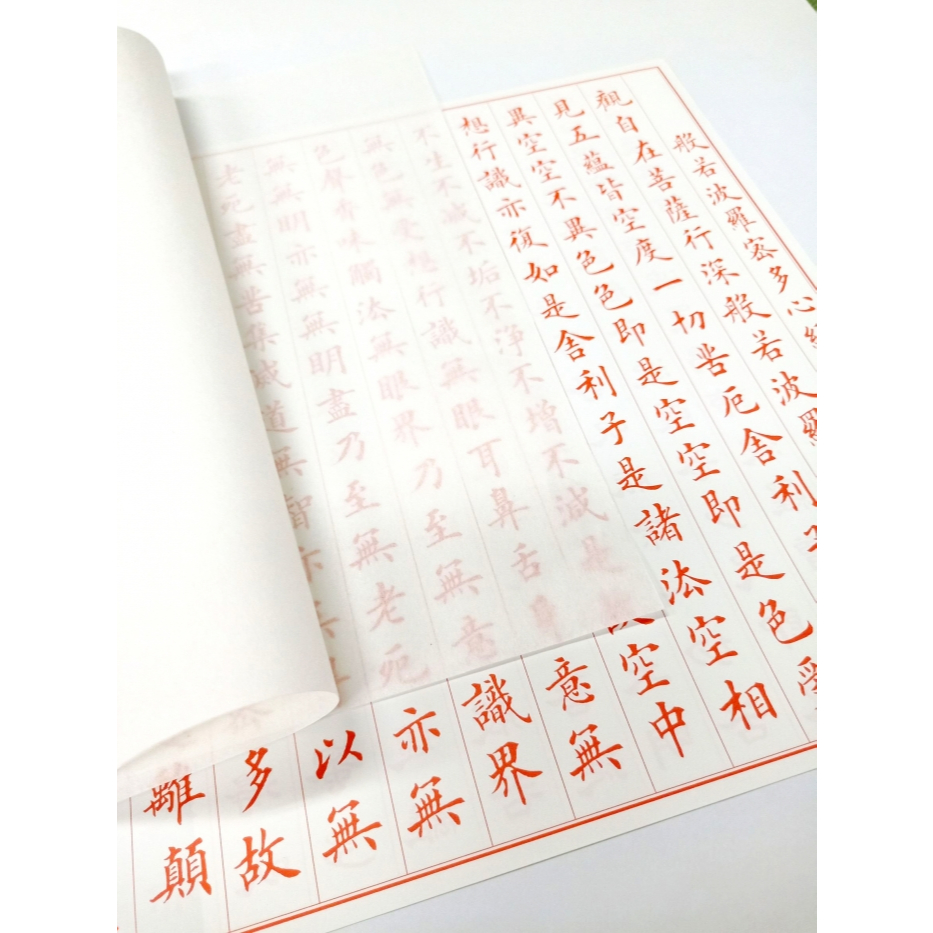 般若波羅密多心經
觀自在菩薩行深般若波羅
見五蘊皆空度一切苦厄舍利子
異空空不異色色即是空空即是色受
想行識亦復如是舍利子是諸法空相
不生不滅不垢不淨不增不減是故空中
無色無受想行識無眼耳鼻舌身意無
色聲香味觸法無眼界乃至無意識界
無無明亦無無明盡乃至無老死亦無
老死盡無苦集滅道無智亦無以無
多故
離顛